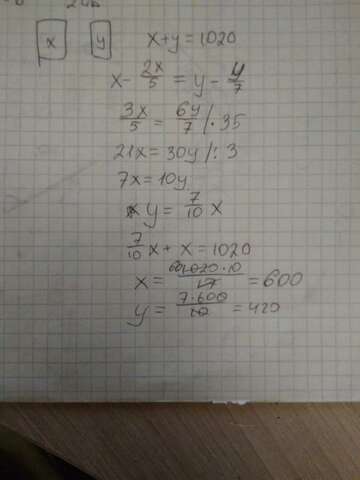 x y x+y=1020
x - 2x/5 = y - y/7
3x/5 = 6y/7 /· 35
21x = 30y /: 3
7x = 10y
y = 7/10 x
7/10 x + x = 1020
x = 1020·10/17 = 600
y = 7·600/10 = 420